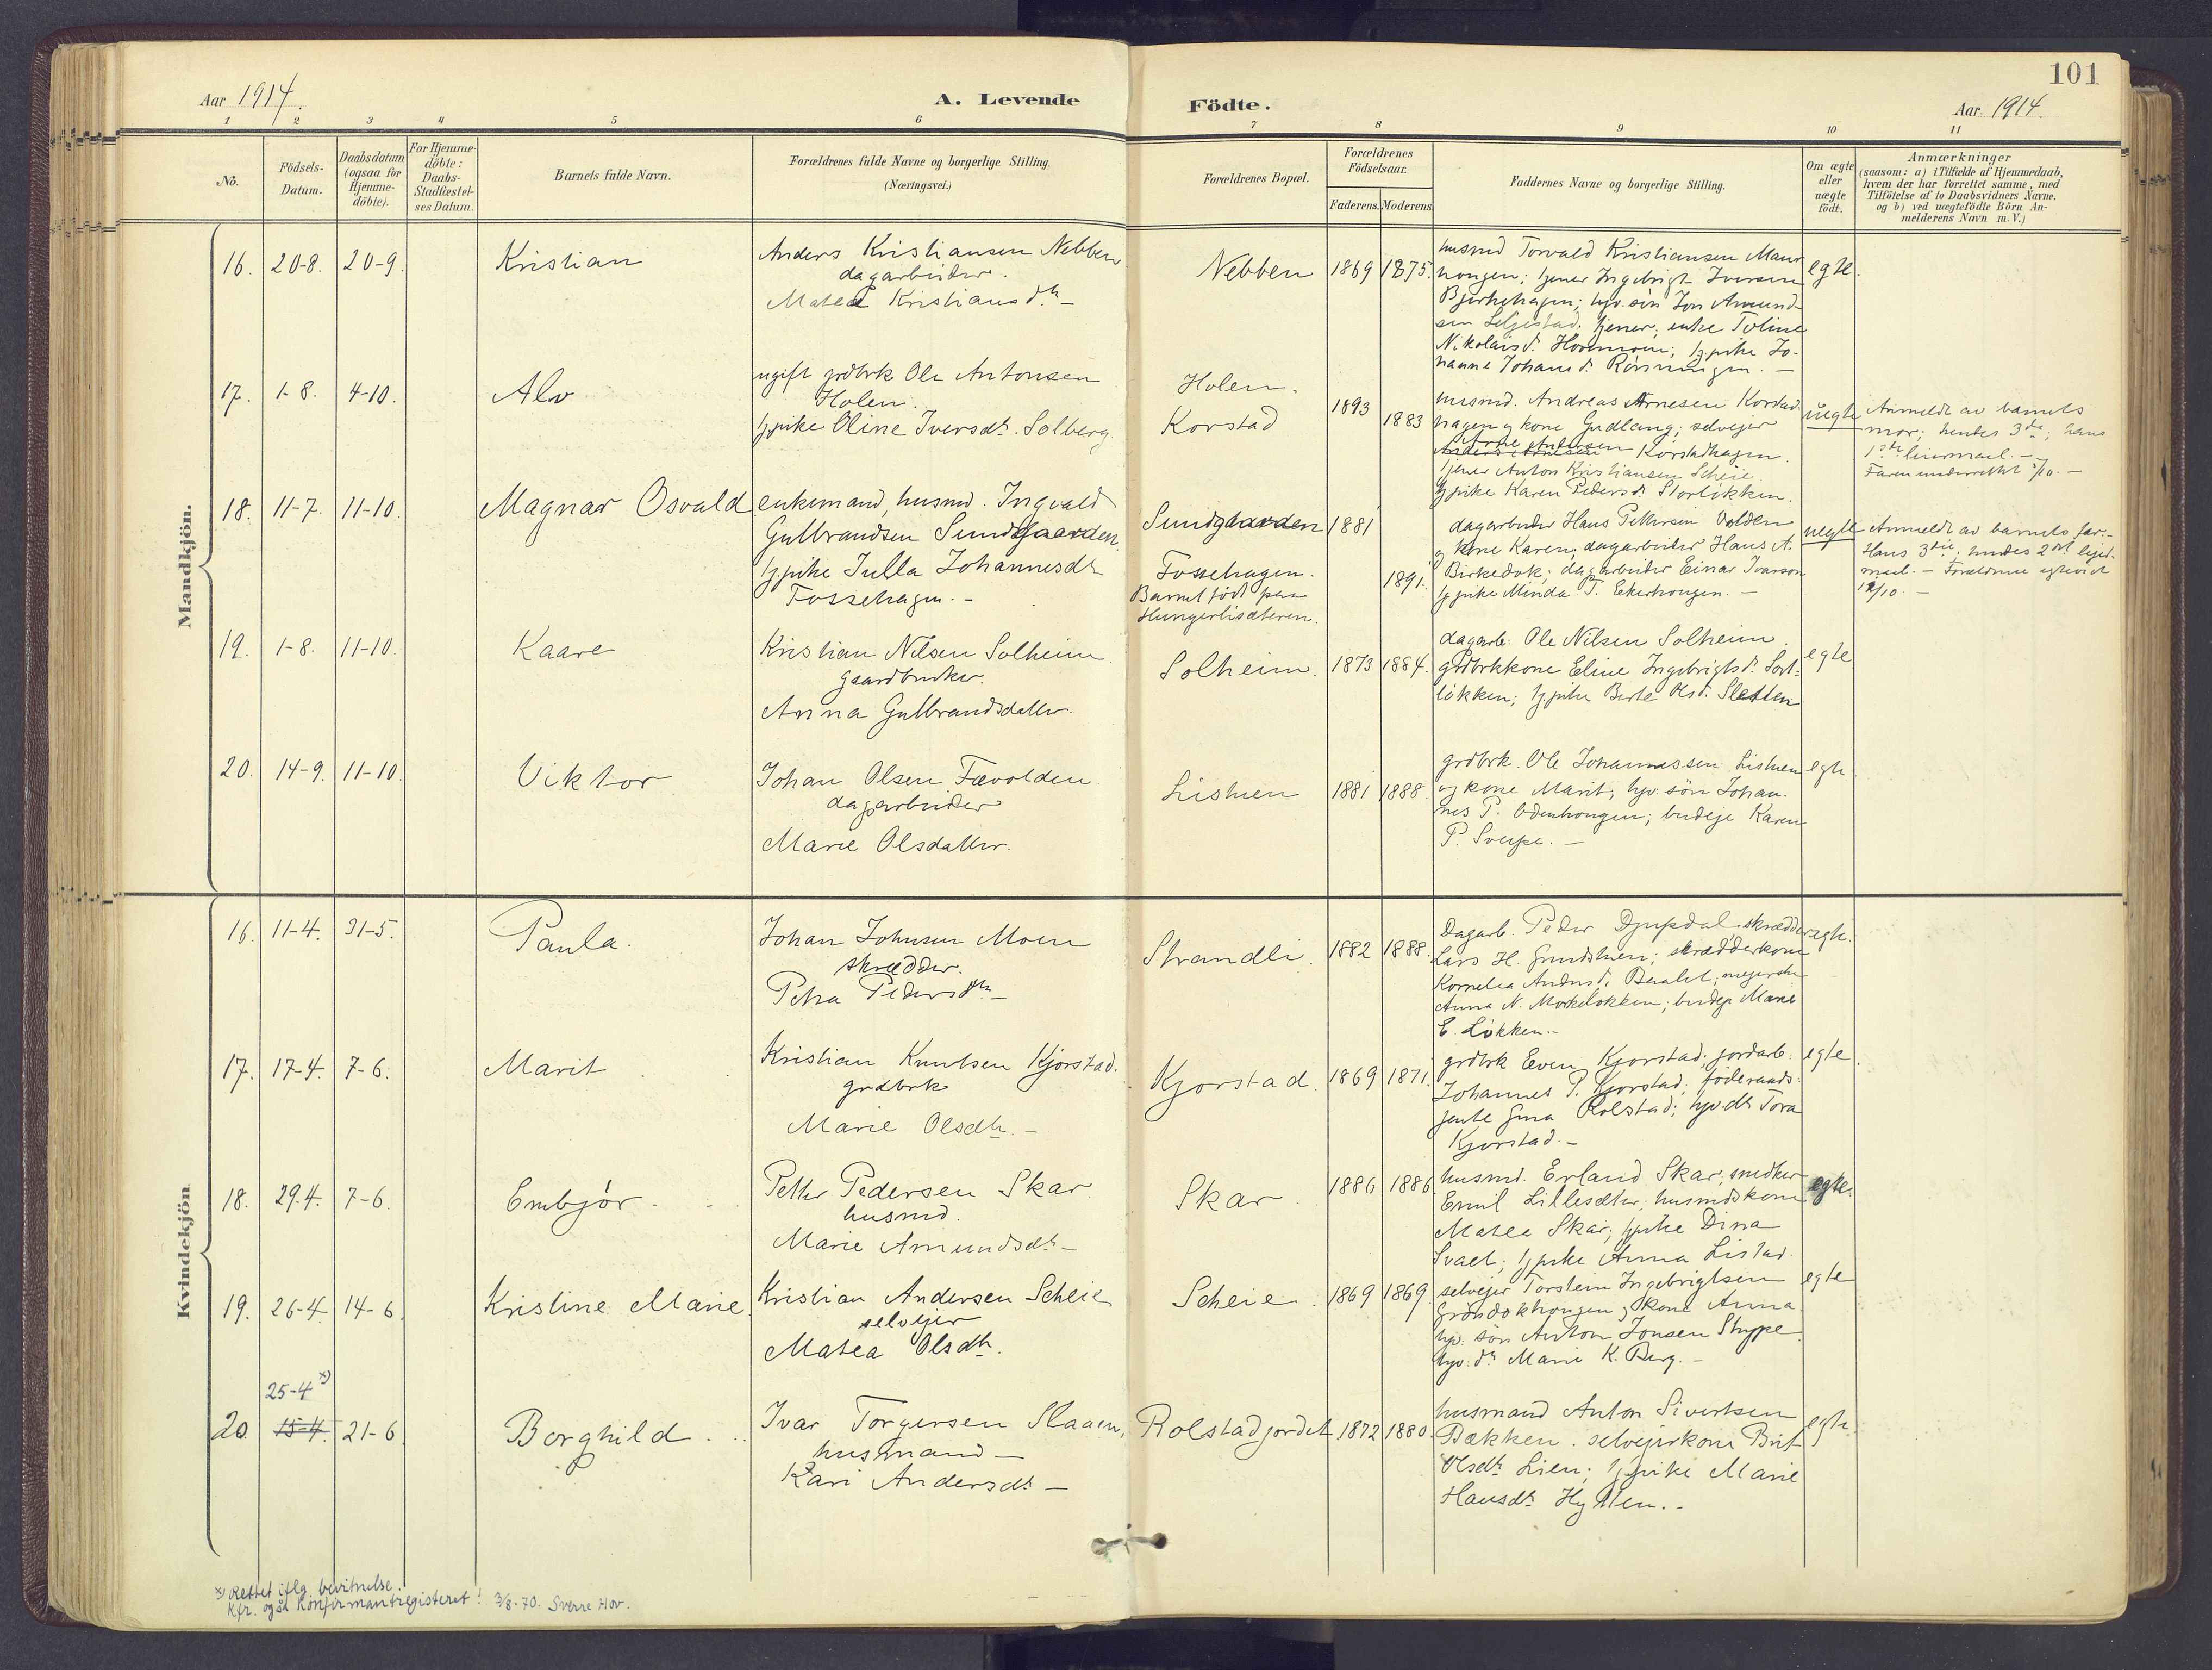 101
Aar 1914.
A. Levende Födte.
Aar 1914.
1 2 3 4 5 6 7 8 9 10 11
No.
Födsels-
Datum.
Daabsdatum
(ogsaa for
Hjemme-
döbte).
For Hjemme-
döbte:
Daabs-
Stadfæstel-
ses Datum.
Barnets fulde Navn.
Forældrenes fulde Navne og borgerlige Stilling.
(Næringsvei.)
Forældrenes Bopæl.
Forældrenes
Födselsaar.
Faderens. Moderens.
Faddernes Navne og borgerlige Stilling.
Om ægte
eller
uægte
födt.
Anmærkninger
(saasom: a) i Tilfælde af Hjemmedaab,
hvem der har forrettet samme, med
Tilföielse af to Daabsvidners Navne.
og b) ved uægtefödte Börn An-
melderens Navn m. V.)
Mandkjön.
16. 20-8. 20-9. Kristian
Anders Kristiansen Nebben
dagarbeider.
Matea Kristiansdtr.
Nebben 1869 1875.
husmd Torvald Kristiansen
Ingebrigt Iversen
Bjørkehagen; hjv. søn Jon Amund-
sen Seljestad. tjener; enke Toline
Nikolaisdt. tj.pike Jo-
hanne Johansdt.
egte.
17. 1-8. 4-10. Alv
ugift grdbrk Ole Antonsen
Holen.
tj.pike Oline Iversdtr. Solberg.
Holen.
Korstad
1893
1883
husmd. Andreas Arnesen Korstad-
hagen og kone Gudlaug; selvejer
Arne Andersen Korstadhagen.
tjener Anton Kristiansen Scheie.
tj.pike Karen Pedersdt. Storløkken.
uegte
Anmeldt av barnets
mor; hendes 3die; hans
1ste leiermaal. -
Faren underrettet
18. 11-7. 11-10. Magnar Osvald
enkemand, husmd. Ingvald
Gulbrandsen Sundgaarden
tj.pike Julla Johannesdtr
Fossehagen. -
Sundgaarden 1881
Fossehagen.
Barnet født paa
Hungerlisæteren.
1891.
dagarbeider Hans Pettersen Volden
og kone Karen; dagarbeider Hans A.
dagarbeider Einar Ivarson
tj.pike Minda T. Ekerhougen. -
uegte
Anmeldt av barnets far. -
Hans 3die, hendes 2det leier-
maal. - Forældrene egteviet
19. 1-8. 11-10. Kaare
Kristian Nilsen Solheim
gaardbruker.
Anna Gulbrandsdatter.
Solheim. 1873 1884.
dagarb. Ole Nilsen Solheim.
grdbrkkone Eline Ingebrigtsdt. Sort-
løkken; tj.pike Berte Olsdt. Sletten
egte
20. 14-9. 11-10. Viktor
Johan Olsen Fævolden.
dagarbeider
Marie Olsdatter.
Listuen 1881 1888.
grdbrk. Ole Johannessen Listuen
og kone Marit, hjv. søn Johan-
nes P. Odenhongen; budeje Karen
P. Sveipe. -
egte.
Kvindekjön
16. 11-4. 31-5. Paula.
Johan Johnsen Moen
skrædder.
Petra Pedersdtr. -
Strandli. 1882 1888.
Dagarb. Peder Djupdal. skrædder
Lars H. Grundstuen; skrædderkone
Kornelia Andersdt.
Anna N. budeje Marie
E. Løkken. -
egte.
17. 17-4. 7-6. Marit
Kristian Knutsen Kjorstad.
grdbrk
Marie Olsdtr. -
Kjorstad. 1869 1871.
grdbrk Even Kjorstad; jordarb.
Johannes P. Kjorstad; føderaads-
jente Gina Rolstad; hjv. dtr Tora
Kjorstad. -
egte.
18. 29.4. 7-6. Embjør
Petter Pedersen Skar
husmd.
Marie Amundsdtr -
Skar 1886 1886
husmd. Erland Skar; snedker
Emil Lillesæter; husmdskone
Matea Skar; tj.pike Dina
tj.pike Anna Listad.
egte.
19. 26-4. 14-6. Kristine Marie
Kristian Andersen Scheie
selvejer
Matea Olsdtr.
Scheie. 1869 1869.
selvejer Torstein Ingebrigtsen
og kone Anna.
hjv. søn Anton Jonsen Stype.
hjv. dtr Marie K. Berg. -
egte
25-4 x)
20. 15-4. 21-6. Borghild
Ivar Torgersen Slaaen,
husmand -
Kari Andersdtr -
Rolstadjordet 1872 1880.
husmand Anton Sivertsen
Bækken. selvejerkone Brit
Olsdtr Lien; tj.pike Marie
Hansdtr
egte.
x) Rettet iflg. bevitnelse.
Kfr. også konfirmantregisteret! 3/8-70. Sverre Hov.